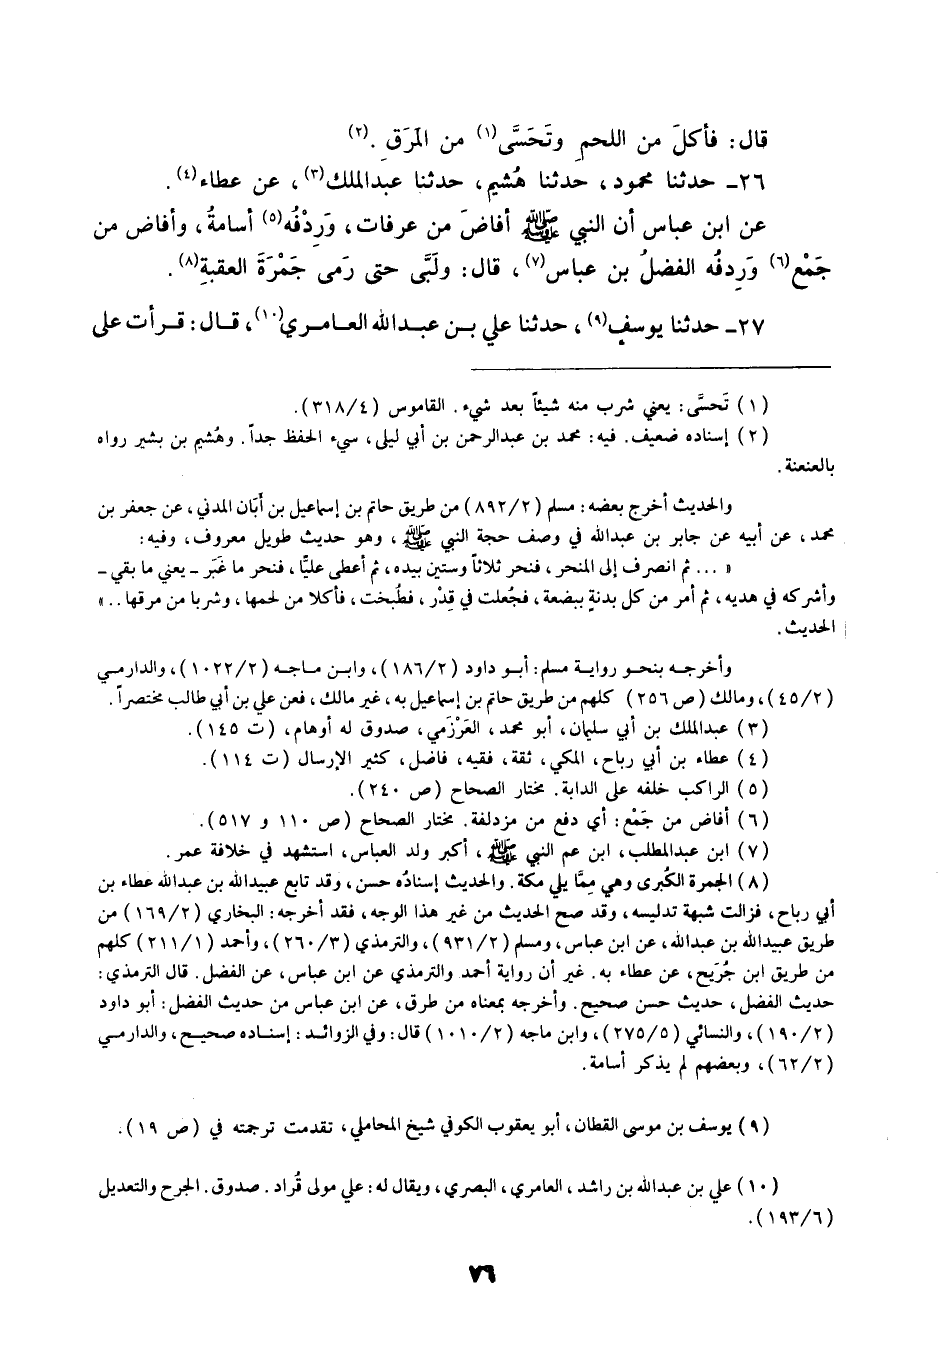 قال: فأكلَ من اللحمِ وتَحَسَّى(١) من المَرَقِ .(٢)
٢٦ـ حدثنا محمود، حدثنا هُشيم، حدثنا عبدالملك(٣)، عن عطاء(٤).
عن ابن عباس أن النبي ﷺ أفاضَ من عرفات، وَرِدْفُه(٥) أسامةُ، وأفاض من
جَمْع(٦) وَرِدفُه الفضلُ بن عباس(٧)، قال: ولَبَّى حتى رَمى جَمْرَةَ العقبةِ(٨).
٢٧ـ حدثنا يوسف(٩)، حدثنا علي بن عبدالله العامري(١٠)، قال: قرأت على
(١) تَحسَّى: يعني شرب منه شيئاً بعد شيء. القاموس (٣١٨/٤).
(٢) إسناده ضعيف. فيه: محمد بن عبدالرحمن بن أبي ليلى، سيء الحفظ جداً. وهُشيم بن بشير رواه
بالعنعنة.
والحديث أخرج بعضه: مسلم (٨٩٢/٢) من طريق حاتم بن إسماعيل بن أَبَان المدني، عن جعفر بن
محمد، عن أبيه عن جابر بن عبدالله في وصف حجة النبي ﷺ، وهو حديث طويل معروف، وفيه:
« ... ثم انصرف إلى المنحر، فنحر ثلاثاً وستين بيده، ثم أعطى عليًّا، فنحر ما غَبَر ـ يعني ما بقي ـ
وأشركه في هديه، ثم أمر من كل بدنةٍ ببضعة، فجُعلت في قِدْر، فطُبخت، فأكلا من لحمها، وشربا من مرقها.. »
الحديث.
وأخرجه بنحو رواية مسلم: أبو داود (١٨٦/٢)، وابن ماجه (١٠٢٢/٢)، والدارمي
(٤٥/٢)، ومالك (ص ٢٥٦) كلهم من طريق حاتم بن إسماعيل به، غير مالك، فعن علي بن أبي طالب مختصراً.
(٣) عبدالملك بن أبي سليمان، أبو محمد، العَرْزَمي، صدوق له أوهام، (ت ١٤٥).
(٤) عطاء بن أبي رباح، المكي، ثقة، فقيه، فاضل، كثير الإرسال (ت ١١٤).
(٥) الراكب خلفه على الدابة. مختار الصحاح (ص ٢٤٠).
(٦) أفاض من جَمْع: أي دفع من مزدلفة. مختار الصحاح (ص ١١٠ و ٥١٧).
(٧) ابن عبدالمطلب، ابن عم النبي ﷺ، أكبر ولد العباس، استشهد في خلافة عمر.
(٨) الجمرة الكُبرى وهي مِمَّا يلي مكة. والحديث إسنادُه حسن، وقد تابع عبيدالله بن عبدالله عطاء بن
أبي رباح، فزالت شبهة تدليسه، وقد صح الحديث من غير هذا الوجه، فقد أخرجه: البخاري (١٦٩/٢) من
طريق عبيدالله بن عبدالله، عن ابن عباس، ومسلم (٩٣١/٢)، والترمذي (٢٦٠/٣)، وأحمد (٢١١/١) كلهم
من طريق ابن جُرَيج، عن عطاء به. غير أن رواية أحمد والترمذي عن ابن عباس، عن الفضل. قال الترمذي:
حديث الفضل، حديث حسن صحيح. وأخرجه بمعناه من طرق، عن ابن عباس من حديث الفضل: أبو داود
(١٩٠/٢)، والنسائي (٢٧٥/٥)، وابن ماجه (١٠١٠/٢) قال: وفي الزوائد: إسناده صحيح، والدارمي
(٦٢/٢)، وبعضهم لم يذكر أسامة.
(٩) يوسف بن موسى القطان، أبو يعقوب الكوفي شيخ المحاملي، تقدمت ترجمته في (ص ١٩).
(١٠) علي بن عبدالله بن راشد، العامري، البصري، ويقال له: علي مولى قُراد. صدوق. الجرح والتعديل
(١٩٣/٦).
٧٦